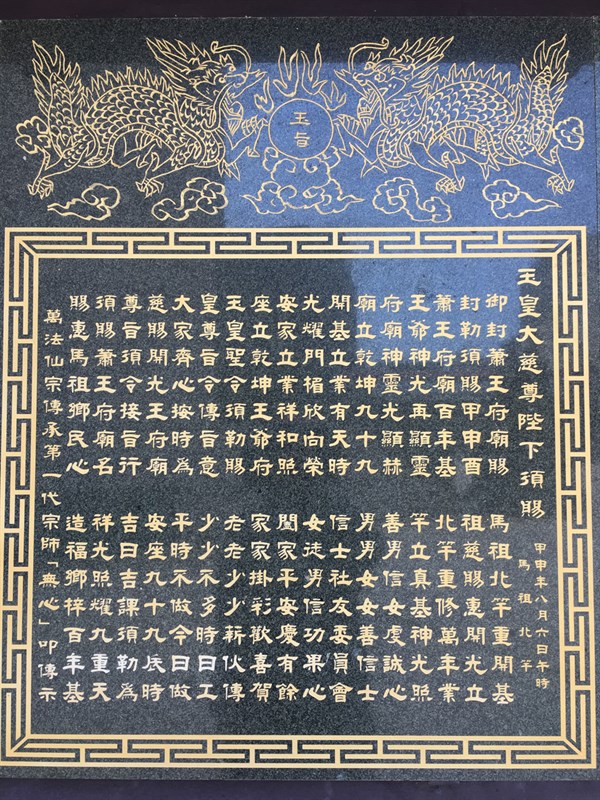 玉旨
玉皇大慈尊陛下須賜
甲申年八月六日午時
馬祖北竿
御封蕭王府廟賜 馬祖北竿重開基
封勒須賜甲申酉 祖慈賜惠開光立
蕭王府廟百年基 北竿重修萬年業
王爺神光再顯靈 竿立真基神光照
府廟神靈光顯赫 善男信女虔誠心
廟立乾坤九十九 男男女女善信士
開基立業有天時 信士社友委員會
光耀門楣欣向榮 女徒男信功果心
安家立業祥和照 闔家平安慶有餘
座立乾坤王爺府 家家掛彩歡喜賀
玉皇聖令須勒賜 老老少少薪伙傳
皇尊旨令傳旨意 少少不多時日工
大家齊心按時為 平時不做今日做
慈賜開光王府廟 安座九十九辰時
尊旨須令接旨行 吉日吉課須勒為
須賜蕭王府廟名 祥光照耀九重天
賜惠馬祖鄉民心 造福鄉梓百年基
萬法仙宗傳承第一代宗師「無心」叩傳示